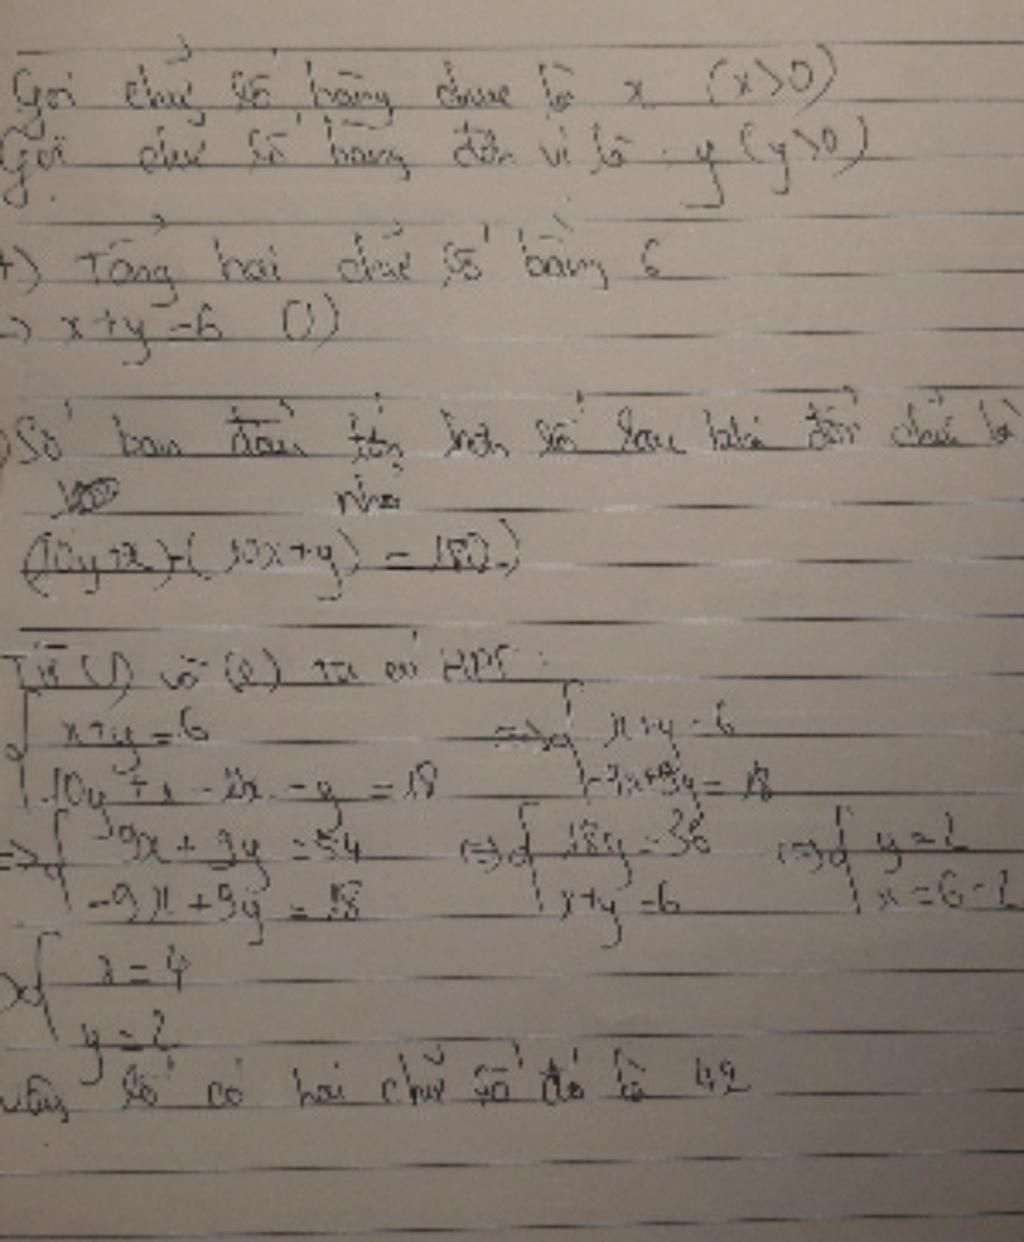 Gọi chữ số hàng chục là x (x>0)
Gọi chữ số hàng đơn vị là y (y>0)
+) Tổng hai chữ số bằng 6
=> x+y=6 (1)
Số ban đầu hơn số sau khi đổi chữ là
nhỏ
(10y+x)-(10x+y) = 18
Từ (1) và (2) ta có HPT:
x+y=6 => x+y=6
10y+x - - y = 18 -9x+9y = 18
=> 9x + 9y = 54 <=> 18y = 36 <=> y = 2
-9x + 9y = 18 x+y=6 x = 6-2
x = 4
y = 2
Vậy số có hai chữ số đó là 42